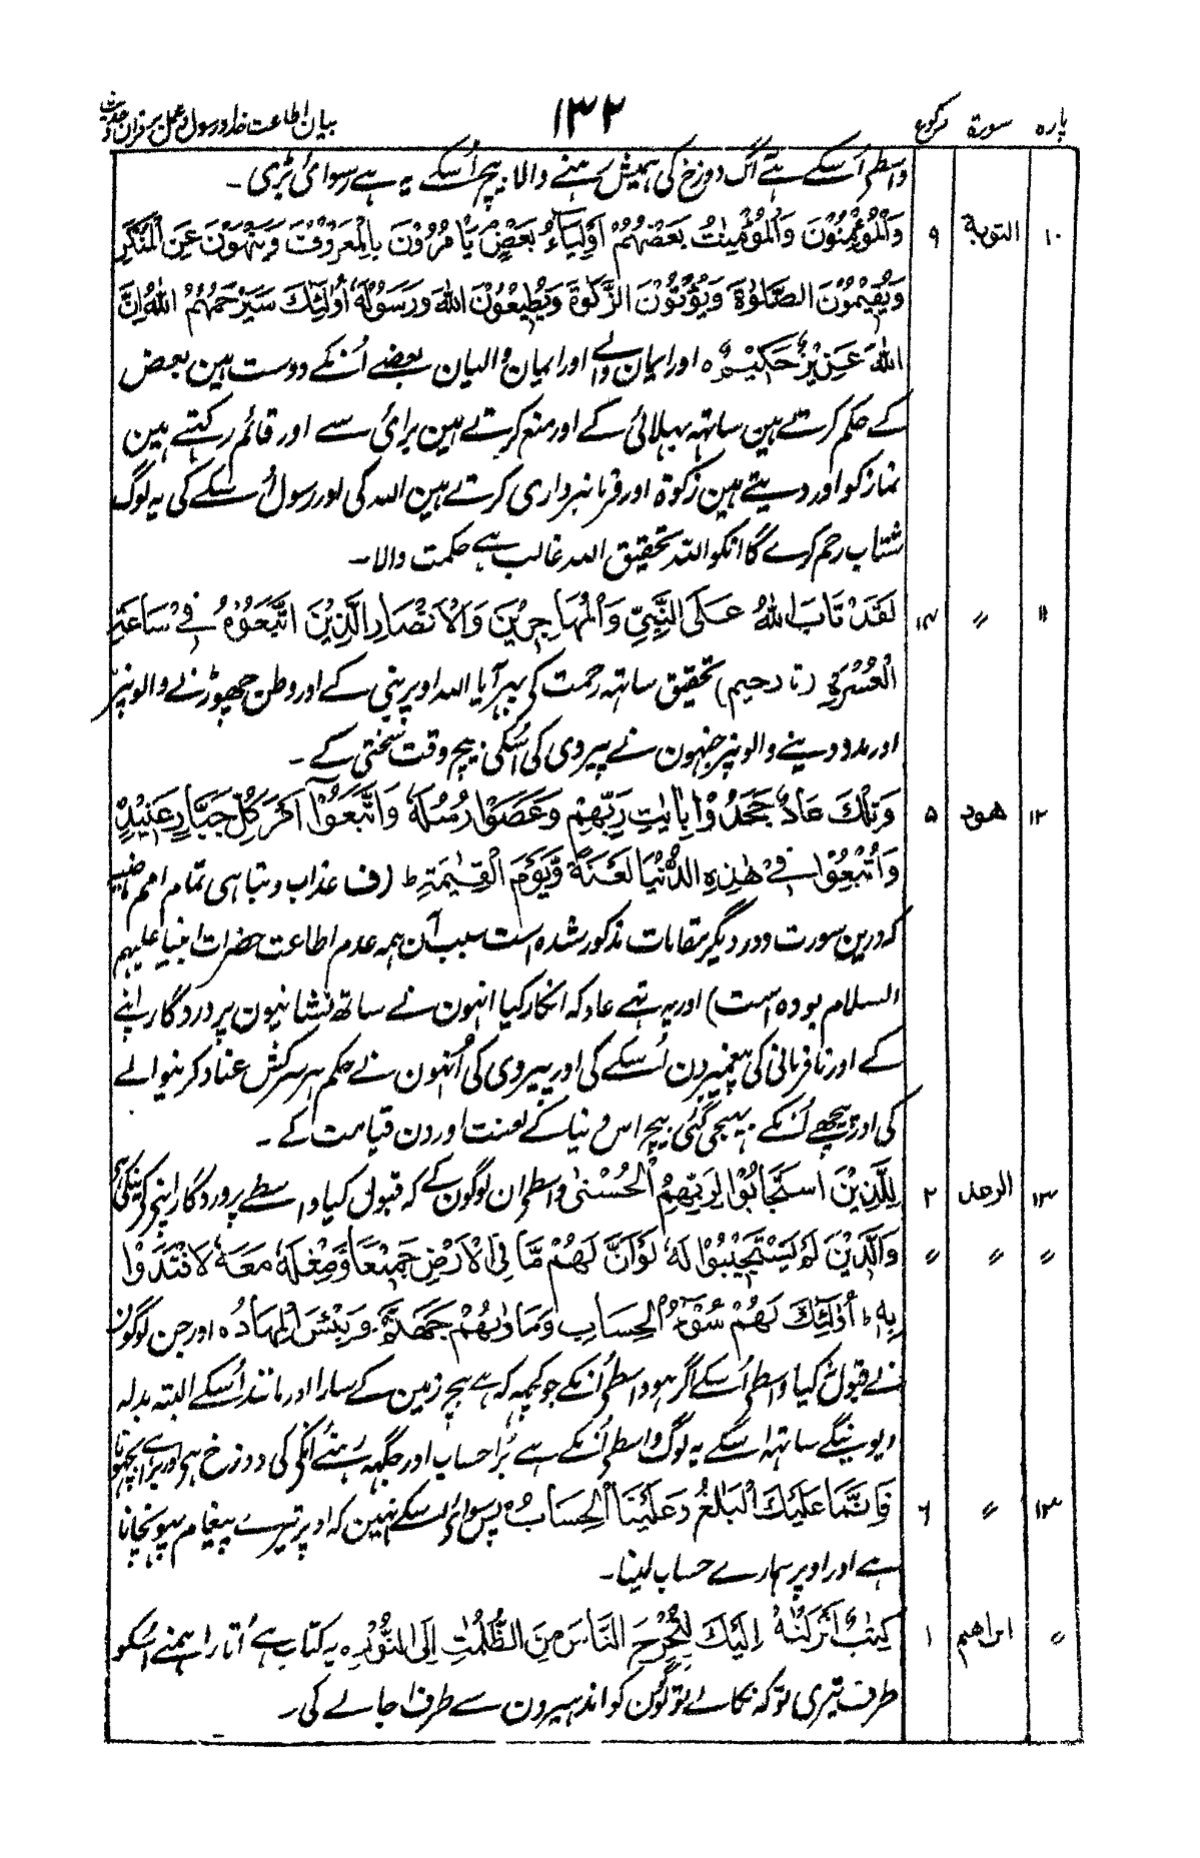 پارہ سورۃ رکوع ۱۳۲ بیان اطاعت خدا و رسول و عمل بر قرآن و حدیث
واسطے اُسکے ہے آگ دوزخ کی ہمیش رہنے والا بیچ اُسکے یہ ہے رسوائی بڑی ۔
۱۰ التوبۃ ۹ وَالْمُؤْمِنُوْنَ وَالْمُؤْمِنٰتُ بَعْضُهُمْ اَوْلِيَآءُ بَعْضٍ يَاْمُرُوْنَ بِالْمَعْرُوْفِ وَيَنْهَوْنَ عَنِ الْمُنْكَرِ
وَيُقِيْمُوْنَ الصَّلٰوةَ وَيُؤْتُوْنَ الزَّكٰوةَ وَيُطِيْعُوْنَ اللهَ وَرَسُوْلَهٗ اُولٰٓئِكَ سَيَرْحَمُهُمُ اللهُ اِنَّ
اللهَ عَزِيْزٌ حَكِيْمٌ ہ اور ایمان والے اور ایمان والیان بعضے اُنکے دوست ہین بعض
کے حکم کرتے ہین ساتہہ بہلائی کے اور منع کرتے ہین برائی سے اور قائم رکہتے ہین
نماز کو اور دیتے ہین زکوۃ اور فرمانبرداری کرتے ہین اللہ کی اور رسول اُسکے کی یہ لوگ
شتاب رحم کرے گا انکو اللہ تحقیق اللہ غالب ہے حکمت والا ۔
۱۱ ״ ۱۴ لَقَدْ تَابَ اللهُ عَلَى النَّبِيِّ وَالْمُهَاجِرِيْنَ وَالْاَنْصَارِ الَّذِيْنَ اتَّبَعُوْهُ فِيْ سَاعَةِ
الْعُسْرَةِ (تا رحیم) تحقیق ساتہہ رحمت کی پہر آیا اللہ اوپر نبی کے اور وطن چہوڑنے والونپر
اور مدد دینے والونپر جنہون نے پیروی کی اُسکی بیچ وقت سختی کے ۔
۱۲ هود ۵ وَتِلْكَ عَادٌ جَحَدُوْا بِاٰيٰتِ رَبِّهِمْ وَعَصَوْا رُسُلَهٗ وَاتَّبَعُوْٓا اَمْرَ كُلِّ جَبَّارٍ عَنِيْدٍ
وَاُتْبِعُوْا فِيْ هٰذِهِ الدُّنْيَا لَعْنَةً وَّيَوْمَ الْقِيٰمَةِ ط (ف عذاب و تباہی تمام امم ماضیہ
کہ درین سورت و در دیگر مقامات مذکور شدہ است سبب آن ہمہ عدم اطاعت حضرات انبیا علیہم
السلام بودہ است) اور یہ تہے عاد کہ انکار کیا انہون نے ساتھ نشانیون پروردگار اپنے
کے اور نافرمانی کی پیغمبرون اُسکے کی اور پیروی کی اُنہون نے حکم ہر سرکش عناد کرنیوالے
کی اور پیچھے اُنکے بہیجی گئی بیچ اس دنیا کے لعنت اور دن قیامت کے ۔
۱۳ الرعد ۲ لِلَّذِيْنَ اسْتَجَابُوْا لِرَبِّهِمُ الْحُسْنٰى واسطے ان لوگون کے کہ قبول کیا واسطے پروردگار اپنے کے نیکی ہے
״ ״ ״ وَالَّذِيْنَ لَمْ يَسْتَجِيْبُوْا لَهٗ لَوْ اَنَّ لَهُمْ مَّا فِي الْاَرْضِ جَمِيْعًا وَّمِثْلَهٗ مَعَهٗ لَافْتَدَوْا
بِهٖ ط اُولٰٓئِكَ لَهُمْ سُوْٓءُ الْحِسَابِ وَمَاْوٰىهُمْ جَهَنَّمُ وَبِئْسَ الْمِهَادُ ہ اور جن لوگون
نے قبول نکیا واسطے اُسکے اگر ہو واسطے اُنکے جو کچہہ کہ ہے بیچ زمین کے سارا اور مانند اُسکے البتہ بدلہ
دیوینگے ساتہہ اسکے یہ لوگ واسطے اُنکے ہے بُرا حساب اور جگہہ رہنے اُنکی کی دوزخ ہے اور بُرا ہے بچہونا
۱۳ ״ ۶ فَاِنَّمَا عَلَيْكَ الْبَلٰغُ وَعَلَيْنَا الْحِسَابُ ہ پس سوائے اسکے نہین کہ اوپر تیرے پیغام پہونچانا
ہے اور اوپر ہمارے حساب لینا ۔
״ ابراهیم ۱ كِتٰبٌ اَنْزَلْنٰهُ اِلَيْكَ لِتُخْرِجَ النَّاسَ مِنَ الظُّلُمٰتِ اِلَى النُّوْرِ ہ یہ کتاب ہے اُتارا ہمنے اُسکو
طرف تیری تو کہ نکالے تو لوگون کو اندہیرون سے طرف اُجالے کی ۔